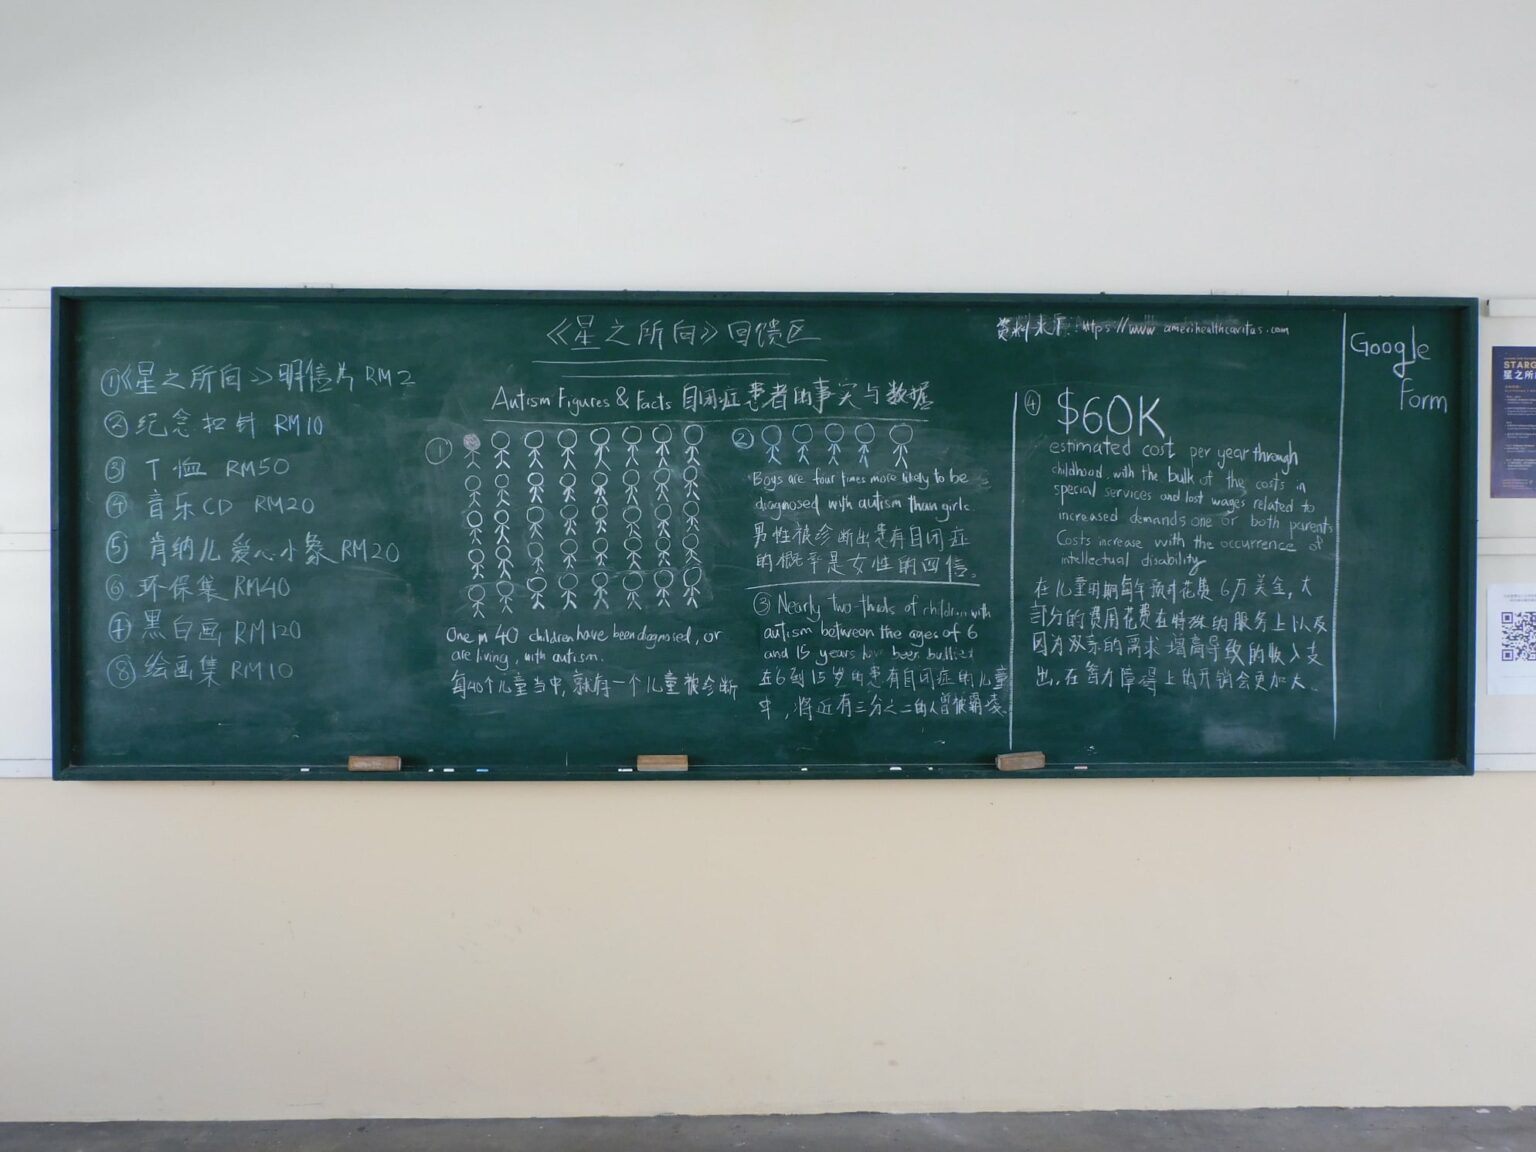 《星之所向》回馈区
①《星之所向》明信片 RM2
② 纪念扣针 RM10
③ T恤 RM50
④ 音乐CD RM20
⑤ 肯纳儿爱心小象 RM20
⑥ 环保集 RM40
⑦ 黑白画 RM120
⑧ 绘画集 RM10
Autism Figures & Facts 自闭症患者的事实与数据
①
One in 40 children have been diagnosed, or
are living, with autism.
每40个儿童当中,就有一个儿童被诊断
②
Boys are four times more likely to be
diagnosed with autism than girls
男性被诊断出患有自闭症
的概率是女性的四倍。
③ Nearly two-thirds of children with
autism between the ages of 6
and 15 years have been bullied
在6到15岁的患有自闭症的儿童
中,将近有三分之二的人曾被霸凌
资料来 https://www amerihealthcaritas.com
④ $60K
estimated cost per year through
childhood, with the bulk of the costs in
special services and lost wages related to
increased demands one or both parents
Costs increase with the occurrence of
intellectual disability
在儿童时期每年预计花费6万美金,大
部分的费用花费在特殊的服务上以及
因为双亲的需求增高导致的收入支
出.在智力障碍上的开销会更加大.
Google
Form
STARG
星之所